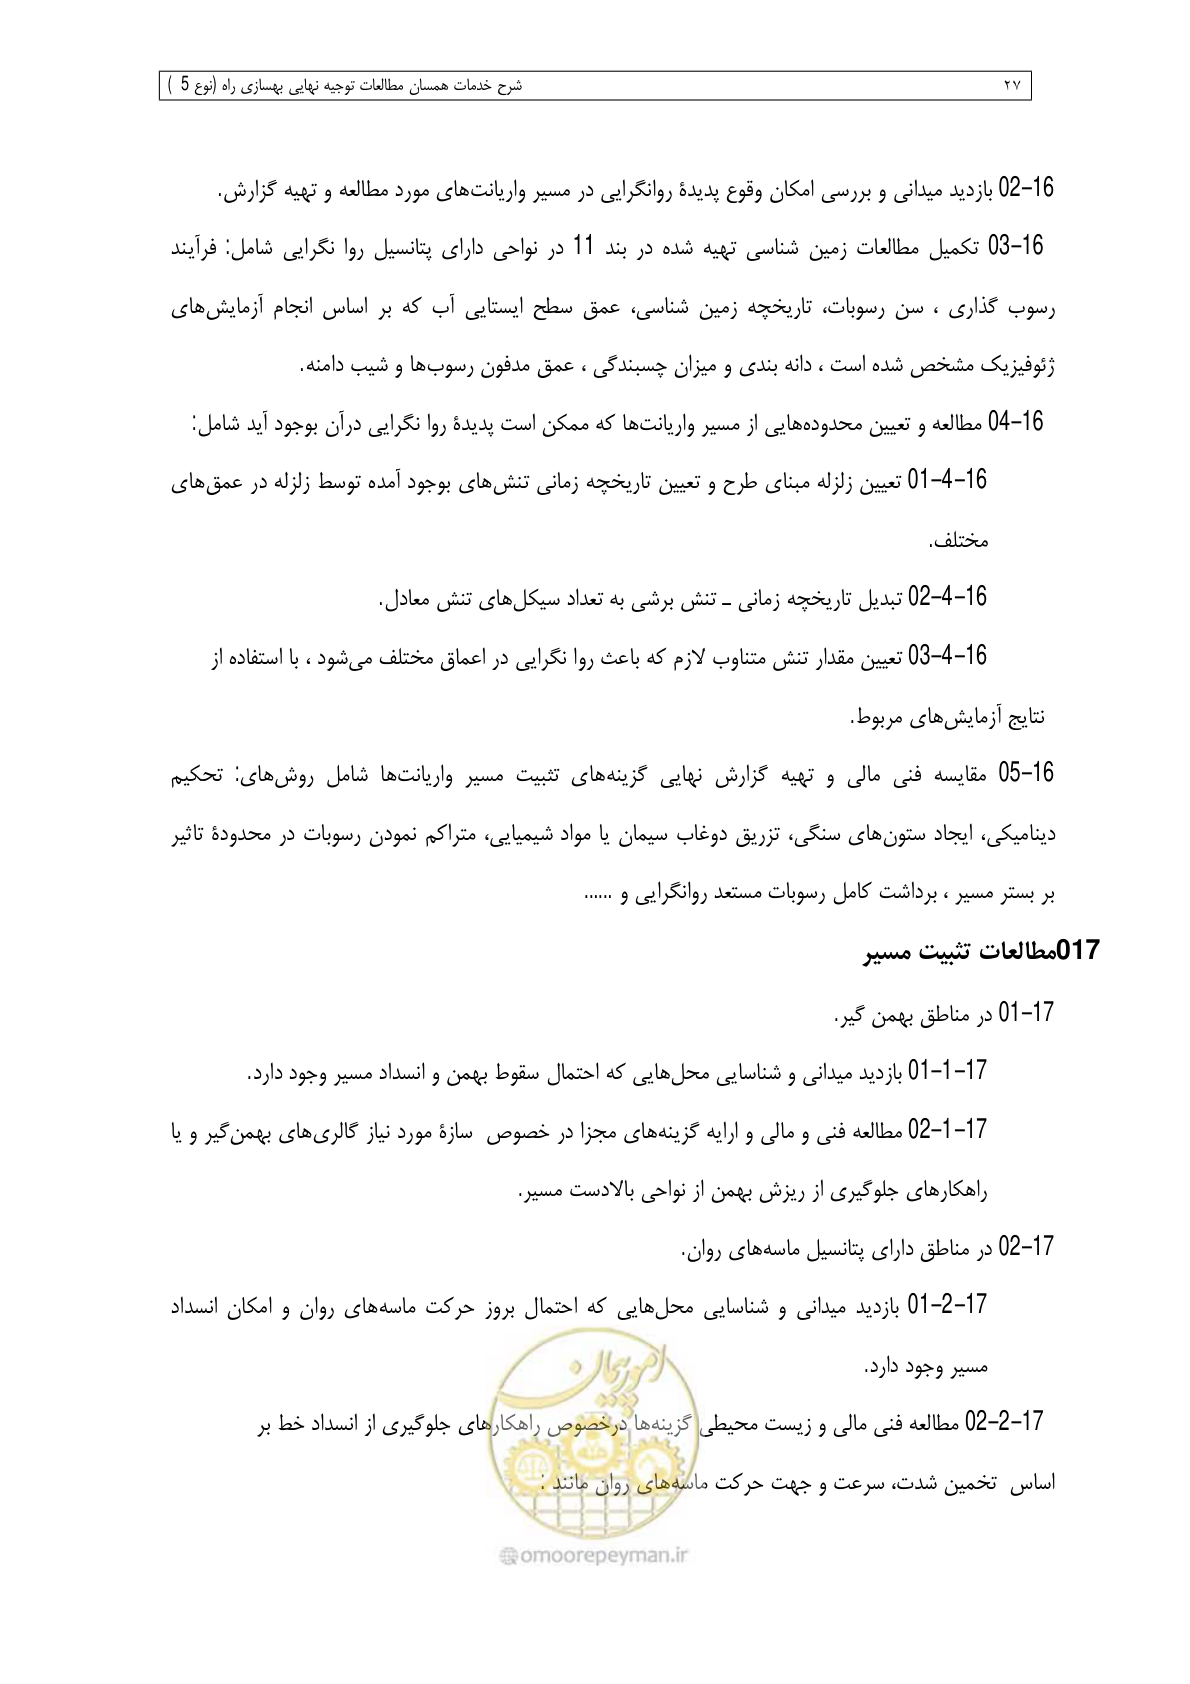 ۲۷ شرح خدمات همسان مطالعات توجیه نهایی بهسازی راه (نوع 5 )
02-16 بازدید میدانی و بررسی امکان وقوع پدیدۀ روانگرایی در مسیر واریانت‌های مورد مطالعه و تهیه گزارش.
03-16 تکمیل مطالعات زمین شناسی تهیه شده در بند 11 در نواحی دارای پتانسیل روا نگرایی شامل: فرآیند
رسوب گذاری ، سن رسوبات، تاریخچه زمین شناسی، عمق سطح ایستایی آب که بر اساس انجام آزمایش‌های
ژئوفیزیک مشخص شده است ، دانه بندی و میزان چسبندگی ، عمق مدفون رسوب‌ها و شیب دامنه.
04-16 مطالعه و تعیین محدوده‌هایی از مسیر واریانت‌ها که ممکن است پدیدۀ روا نگرایی درآن بوجود آید شامل:
01-4-16 تعیین زلزله مبنای طرح و تعیین تاریخچه زمانی تنش‌های بوجود آمده توسط زلزله در عمق‌های
مختلف.
02-4-16 تبدیل تاریخچه زمانی ـ تنش برشی به تعداد سیکل‌های تنش معادل.
03-4-16 تعیین مقدار تنش متناوب لازم که باعث روا نگرایی در اعماق مختلف می‌شود ، با استفاده از
نتایج آزمایش‌های مربوط.
05-16 مقایسه فنی مالی و تهیه گزارش نهایی گزینه‌های تثبیت مسیر واریانت‌ها شامل روش‌های: تحکیم
دینامیکی، ایجاد ستون‌های سنگی، تزریق دوغاب سیمان یا مواد شیمیایی، متراکم نمودن رسوبات در محدودۀ تاثیر
بر بستر مسیر ، برداشت کامل رسوبات مستعد روانگرایی و ......
017مطالعات تثبیت مسیر
01-17 در مناطق بهمن گیر.
01-1-17 بازدید میدانی و شناسایی محل‌هایی که احتمال سقوط بهمن و انسداد مسیر وجود دارد.
02-1-17 مطالعه فنی و مالی و ارایه گزینه‌های مجزا در خصوص سازۀ مورد نیاز گالری‌های بهمن‌گیر و یا
راهکارهای جلوگیری از ریزش بهمن از نواحی بالادست مسیر.
02-17 در مناطق دارای پتانسیل ماسه‌های روان.
01-2-17 بازدید میدانی و شناسایی محل‌هایی که احتمال بروز حرکت ماسه‌های روان و امکان انسداد
مسیر وجود دارد.
امور پیمان
02-2-17 مطالعه فنی مالی و زیست محیطی گزینه‌ها درخصوص راهکارهای جلوگیری از انسداد خط بر
اساس تخمین شدت، سرعت و جهت حرکت ماسه‌های روان مانند :
@omoorepeyman.ir